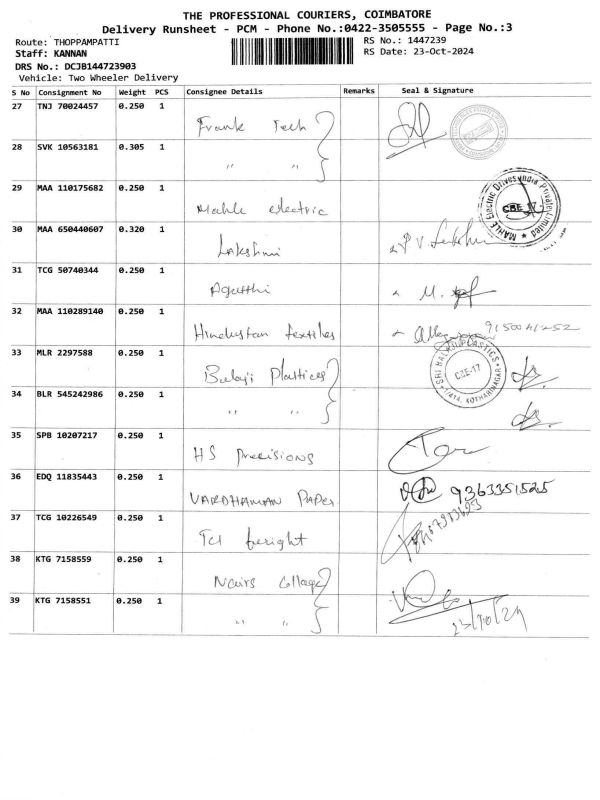 THE PROFESSIONAL COURIERS, COIMBATORE
Delivery Runsheet - PCM - Phone No.:0422-3505555 - Page No.:3
Route: THOPPAMPATTI
RS No.: 1447239
Staff: KANNAN
RS Date: 23-Oct-2024
DRS No.: DCJB144723903
Vehicle: Two Wheeler Delivery
S No Consignment No Weight PCS Consignee Details Remarks Seal & Signature
27 TNJ 70024457 0.250 1 Frank Tech
28 SVK 10563181 0.305 1 " "
29 MAA 110175682 0.250 1 Mahle electric
MAHLE Electric Drives India Private Limited
CBE
30 MAA 650440607 0.320 1 Lakshmi
31 TCG 50740344 0.250 1 Agatthi
32 MAA 110289140 0.250 1 Hindustan textiles
33 MLR 2297588 0.250 1 Balaji Plastices
SRI BALAJI PLASTICS
CBE-17
34 BLR 545242986 0.250 1 " "
35 SPB 10207217 0.250 1 HS Precisions
36 EDQ 11835443 0.250 1 VARDHAMAN PAPER 9363351525
37 TCG 10226549 0.250 1 TCI freight
38 KTG 7158559 0.250 1 Nairs Collage
39 KTG 7158551 0.250 1 " " 23/10/24